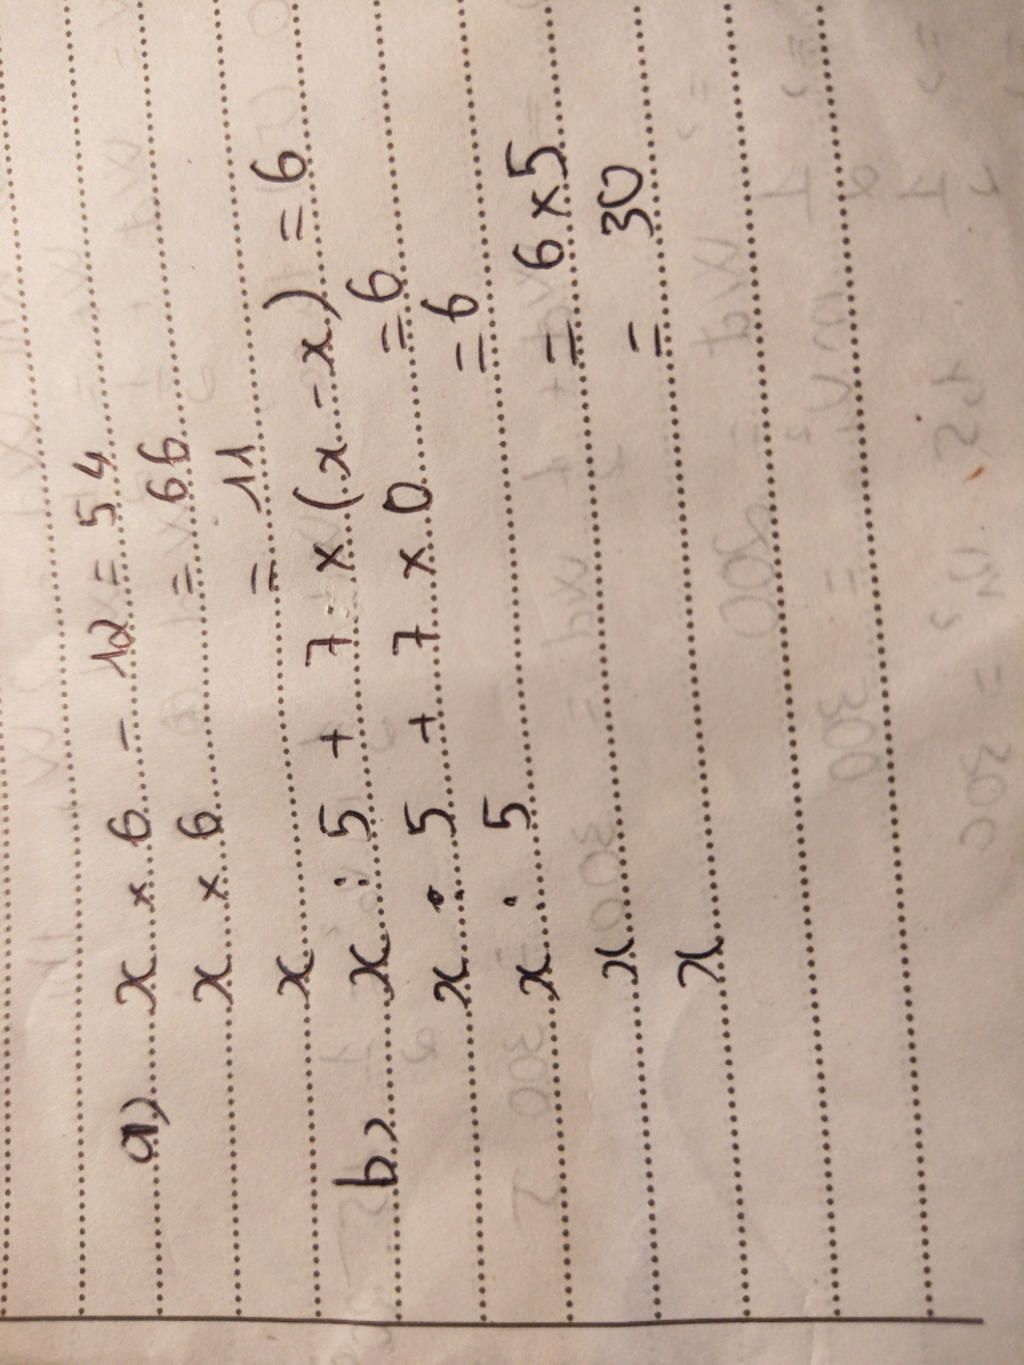 a) x × 6 - 12 = 54
x × 6 = 66
x = 11
b, x : 5 + 7 × (x - x) = 6
x : 5 + 7 × 0 = 6
x : 5 = 6
x = 6 × 5
x = 30